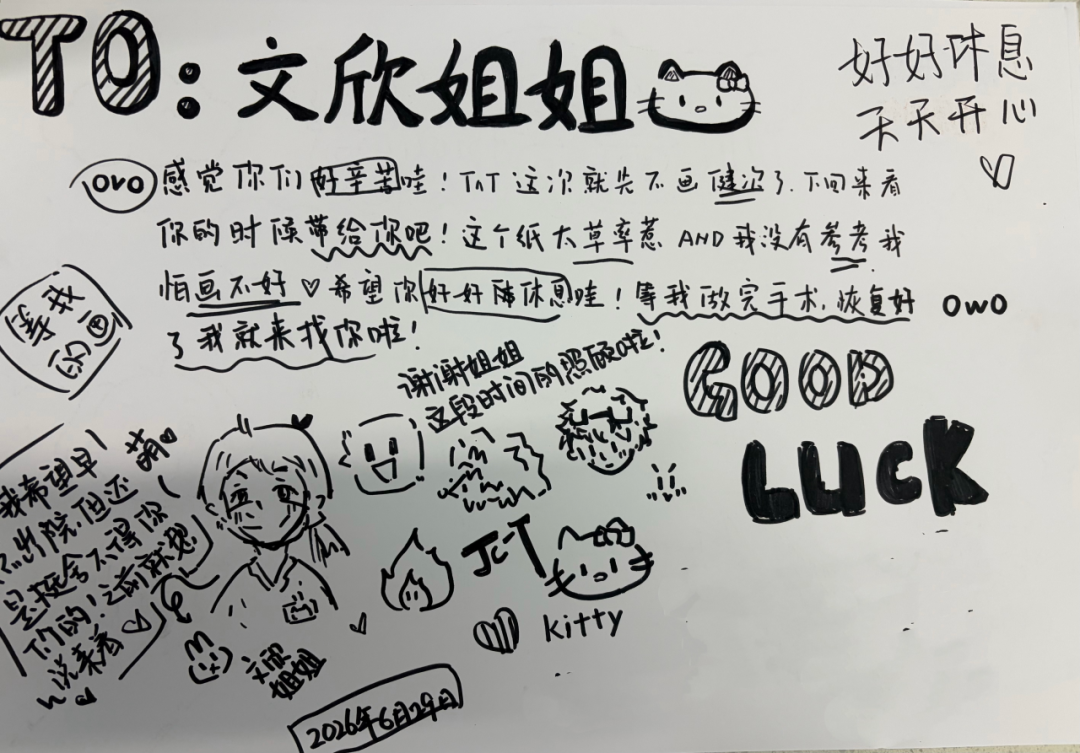 TO:文欣姐姐
好好休息
天天开心
OVO 感觉你们好辛苦哇!TAT 这次就先不画健次了.下回来看
你的时候带给你吧!这个纸太草率惹 AND 我没有参考.我
怕画不好♡希望你好好休息哇!等我做完手术,恢复好 OWO
了我就来找你啦!
等我
的画
谢谢姐姐
这段时间的照顾啦!
GOOD
LUCK
我希望早
点出院,但还
是挺舍不得你
们的!之前就想
说来着♡
萌♡
JC-T
Kitty
文欣
姐姐
2026年6月29日